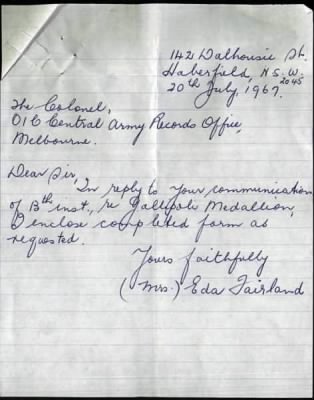 142 Dalhousie St.
Haberfield, N.S.W.
2045
20th July, 1967.
The Colonel,
OIC Central Army Records Office,
Melbourne.
Dear Sir,
In reply to your communication
of 13th inst., re Gallipoli Medallion,
I enclose completed form as
requested.
Yours faithfully
(Mrs.) Eda Fairland